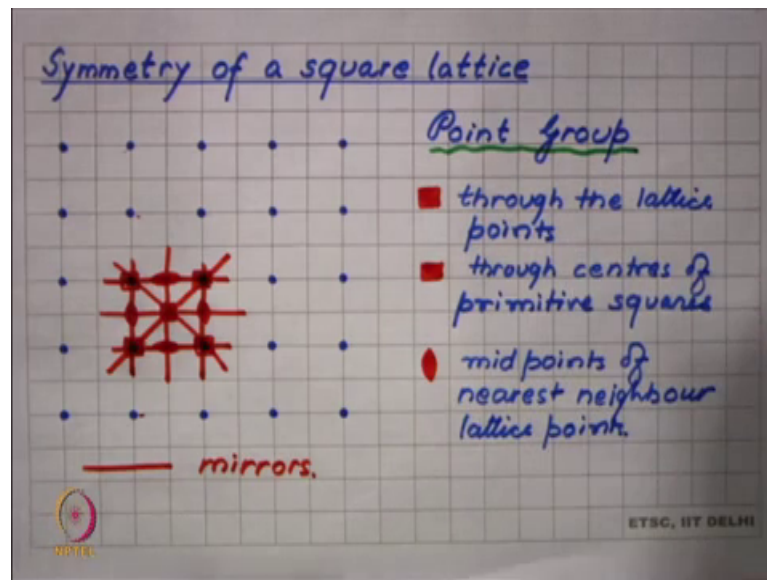 Symmetry of a square lattice
Point Group
through the lattice
points
through centres of
primitive squares
mid points of
nearest neighbour
lattice point.
mirrors.
ETSC, IIT DELHI
NPTEL